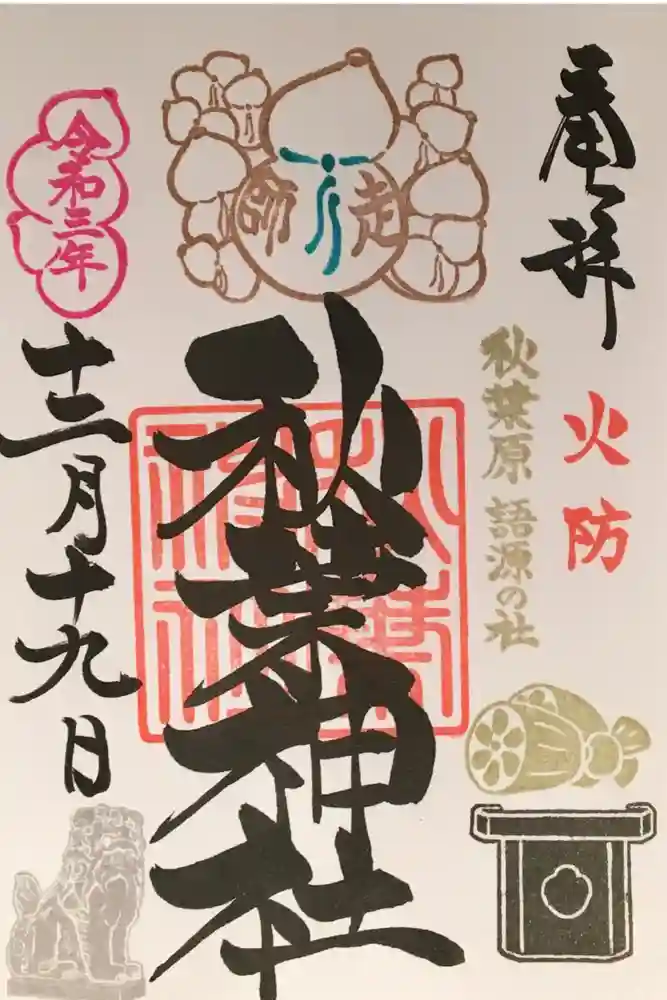 奉拝
火防
秋葉原 語源の社
走
師
秋葉神社
令和三年
十二月十九日